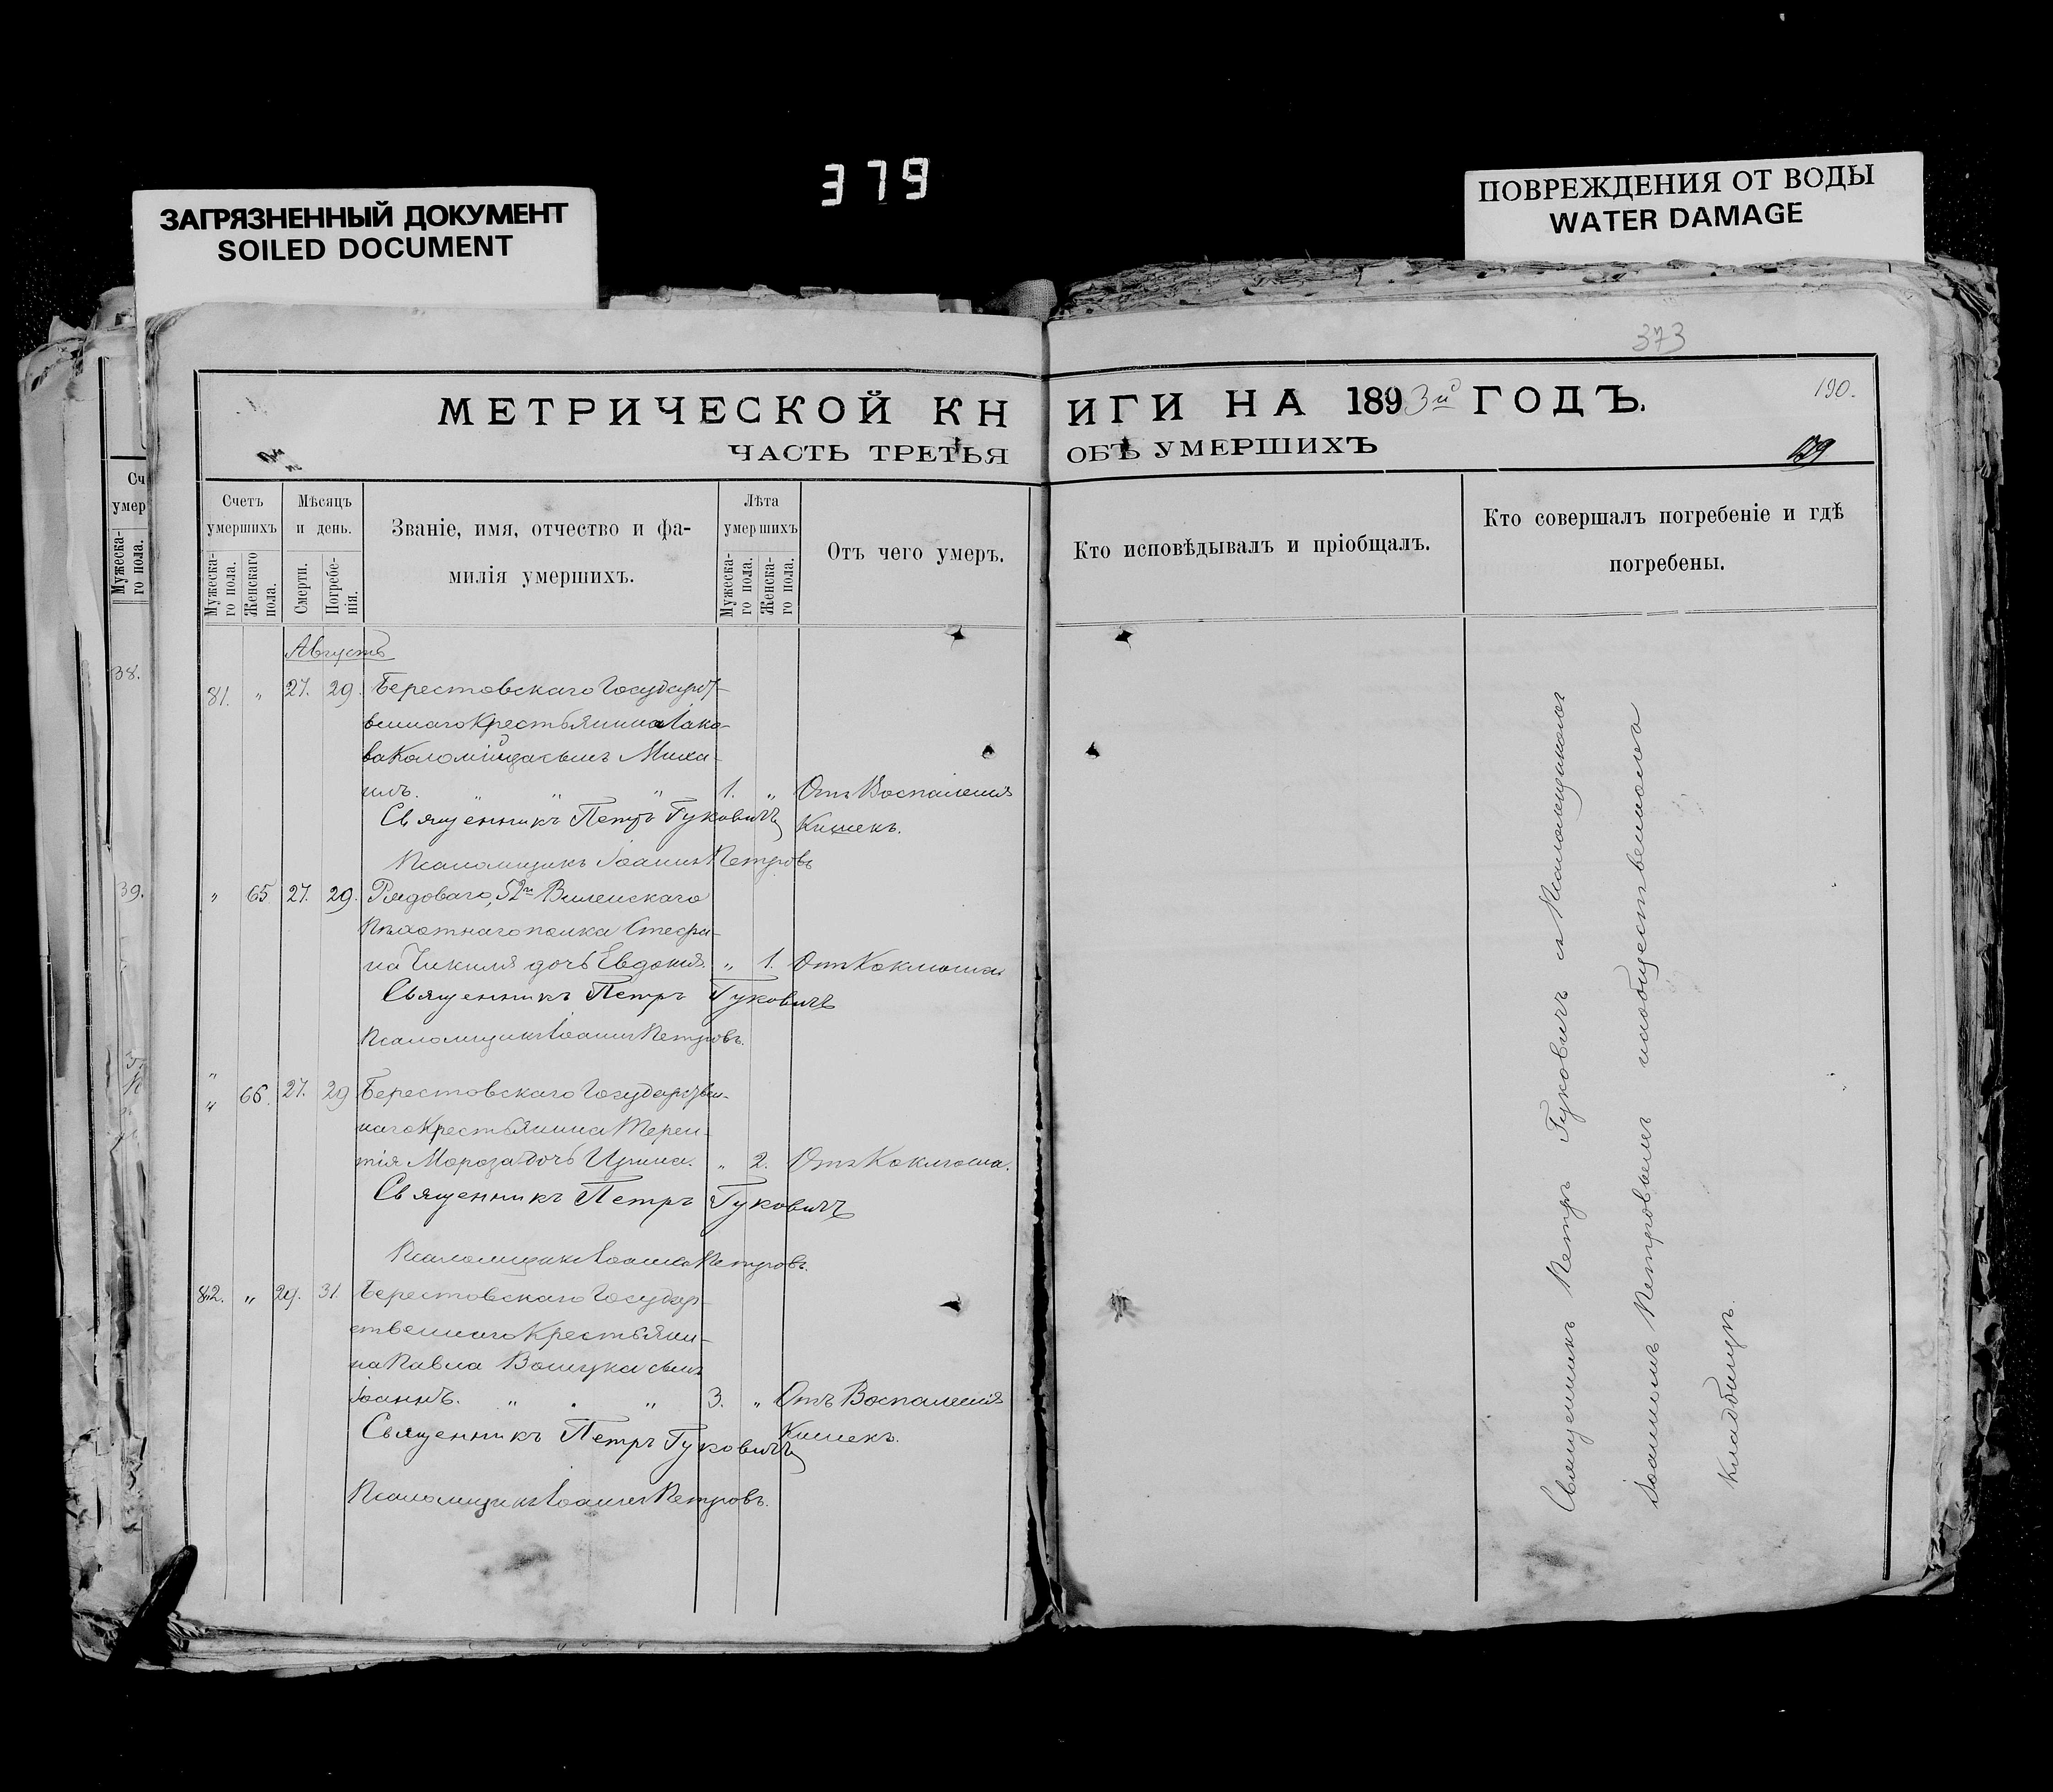 379
ЗАГРЯЗНЕННЫЙ ДОКУМЕНТ
SOILED DOCUMENT
ПОВРЕЖДЕНИЯ ОТ ВОДЫ
WATER DAMAGE
373
МЕТРИЧЕСКОЙ КНИГИ НА 1893й ГОДЪ.
190.
ЧАСТЬ ТРЕТЬЯ ОБЪ УМЕРШИХЪ
189
Счетъ умершихъ
Мужеска-го пола.
Женскаго пола.
Мѣсяцъ и день.
Смерти.
Погребе-нія.
Званіе, имя, отчество и фа-
милія умершихъ.
Лѣта умершихъ
Мужеска-го пола.
Женска-го пола.
Отъ чего умеръ.
Кто исповѣдывалъ и пріобщалъ.
Кто совершалъ погребеніе и гдѣ
погребены.
Сч
умер
Мужеска-
го пола.
38.
39.
Августъ
81. " 27. 29. Берестовскаго Государст-
веннаго Крестьянина Іако-
ва Коломійца сынъ Миха-
илъ. " " " 1. " Отъ Воспаленія
Кишекъ.
Священникъ Петръ Гуковичъ
Псаломщикъ Іоаннъ Петровъ
" 65 27. 29. Рядоваго, 52го Виленскаго
Пѣхотнаго полка Стефа-
на Чикиля дочь Евдокія. " 1. Отъ Коклюша
Священникъ Петръ Гуковичъ
Псаломщикъ Іоаннъ Петровъ.
" 66. 27. 29 Берестовскаго Государствен-
наго Крестьянина Терен-
тія Мороза дочь Ирина. " 2. Отъ Коклюша.
Священникъ Петръ Гуковичъ
Псаломщикъ Іоаннъ Петровъ.
82. " 29. 31. Берестовскаго Государ-
ственнаго Крестьяни-
на Павла сынъ
Іоаннъ. " " " 3. " Отъ Воспаленія
Кишекъ.
Священникъ Петръ Гуковичъ
Псаломщикъ Іоаннъ Петровъ.
Священникъ Петръ Гуковичъ съ Псаломщикомъ
Іоанномъ Петровымъ на общественномъ
Кладбищѣ.